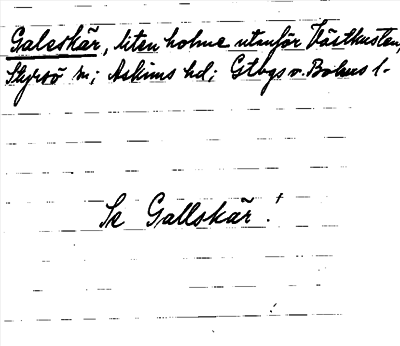 Galeskär, liten holme utanför Västkusten,
Styrsö sn; Askims hd; Gtbgs o. Bohus l.
Se Gallskär!